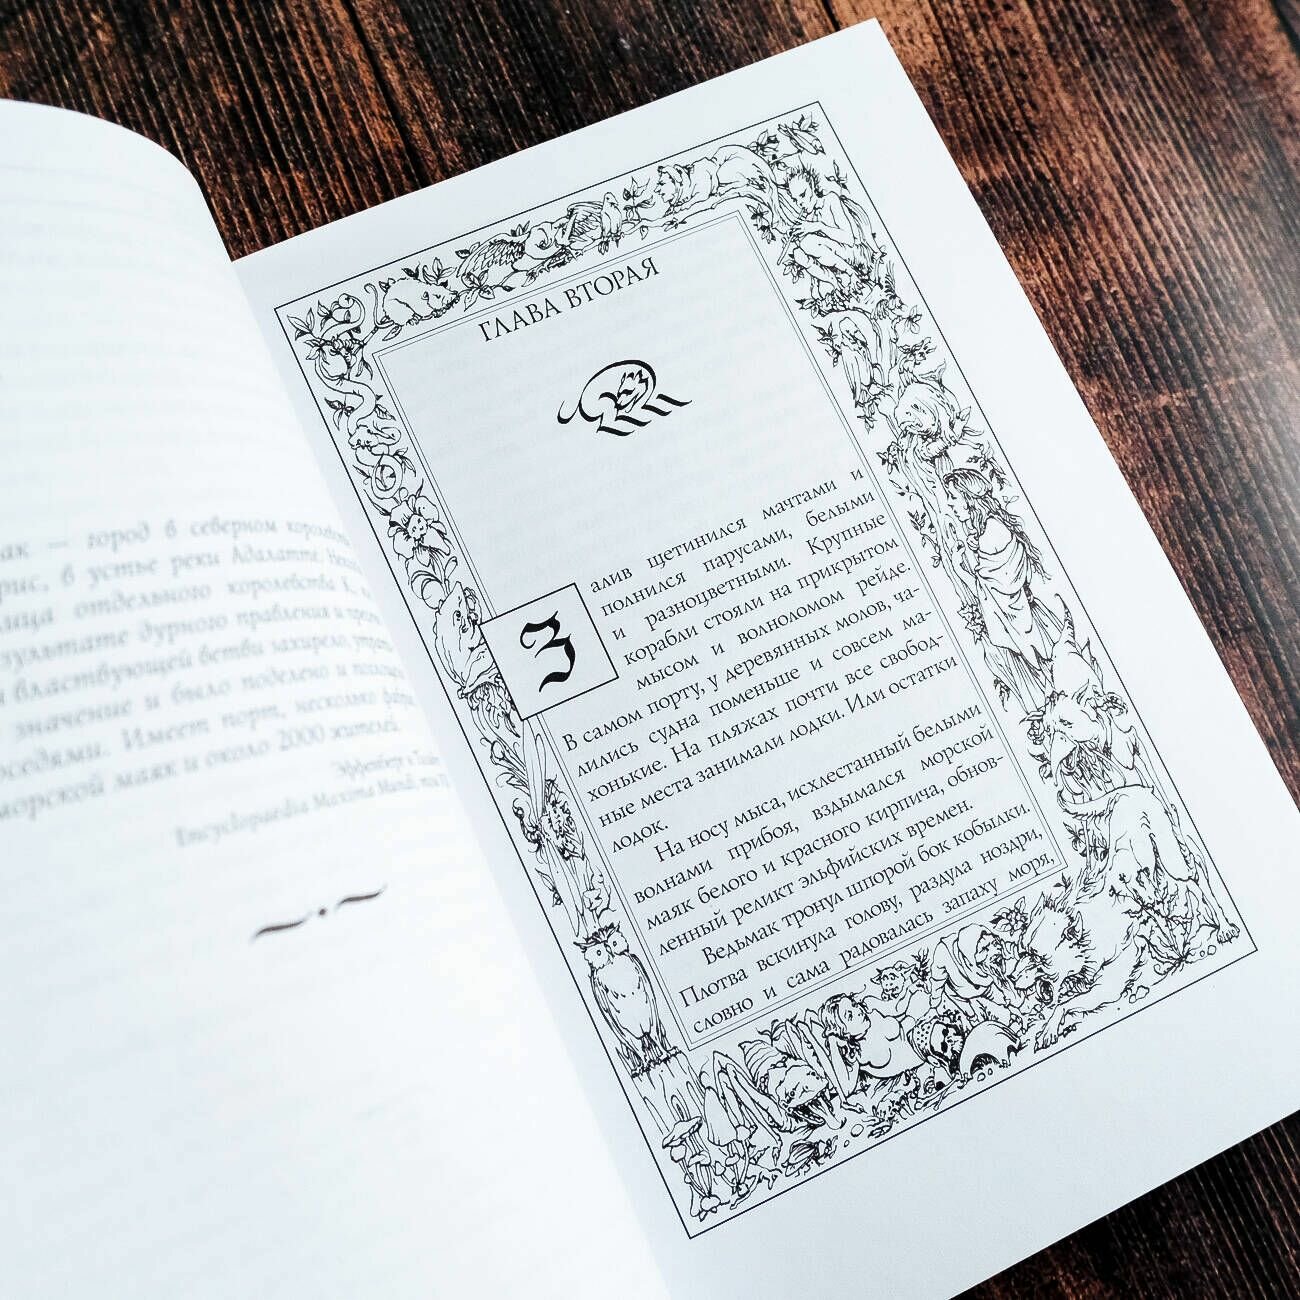 ак — город в северном
рис, в устье реки Адалатте.
лица отдельного королевства К
зультате дурного правления и
и властвующей ветви захирело,
значение и было поделено и
оседями. Имеет порт, несколько
морской маяк и около 2000 жителей.
Эффенберг и
Encyclopaedia Maxima Mundi,
ГЛАВА ВТОРАЯ
Залив щетинился мачтами и
полнился парусами, белыми
и разноцветными. Крупные
корабли стояли на прикрытом
мысом и волноломом рейде.
В самом порту, у деревянных молов, ча-
лились судна поменьше и совсем ма-
хонькие. На пляжах почти все свобод-
ные места занимали лодки. Или остатки
лодок.
На носу мыса, исхлестанный белыми
волнами прибоя, вздымался морской
маяк белого и красного кирпича, обнов-
ленный реликт эльфийских времен.
Ведьмак тронул шпорой бок кобылки.
Плотва вскинула голову, раздула ноздри,
словно и сама радовалась запаху моря,